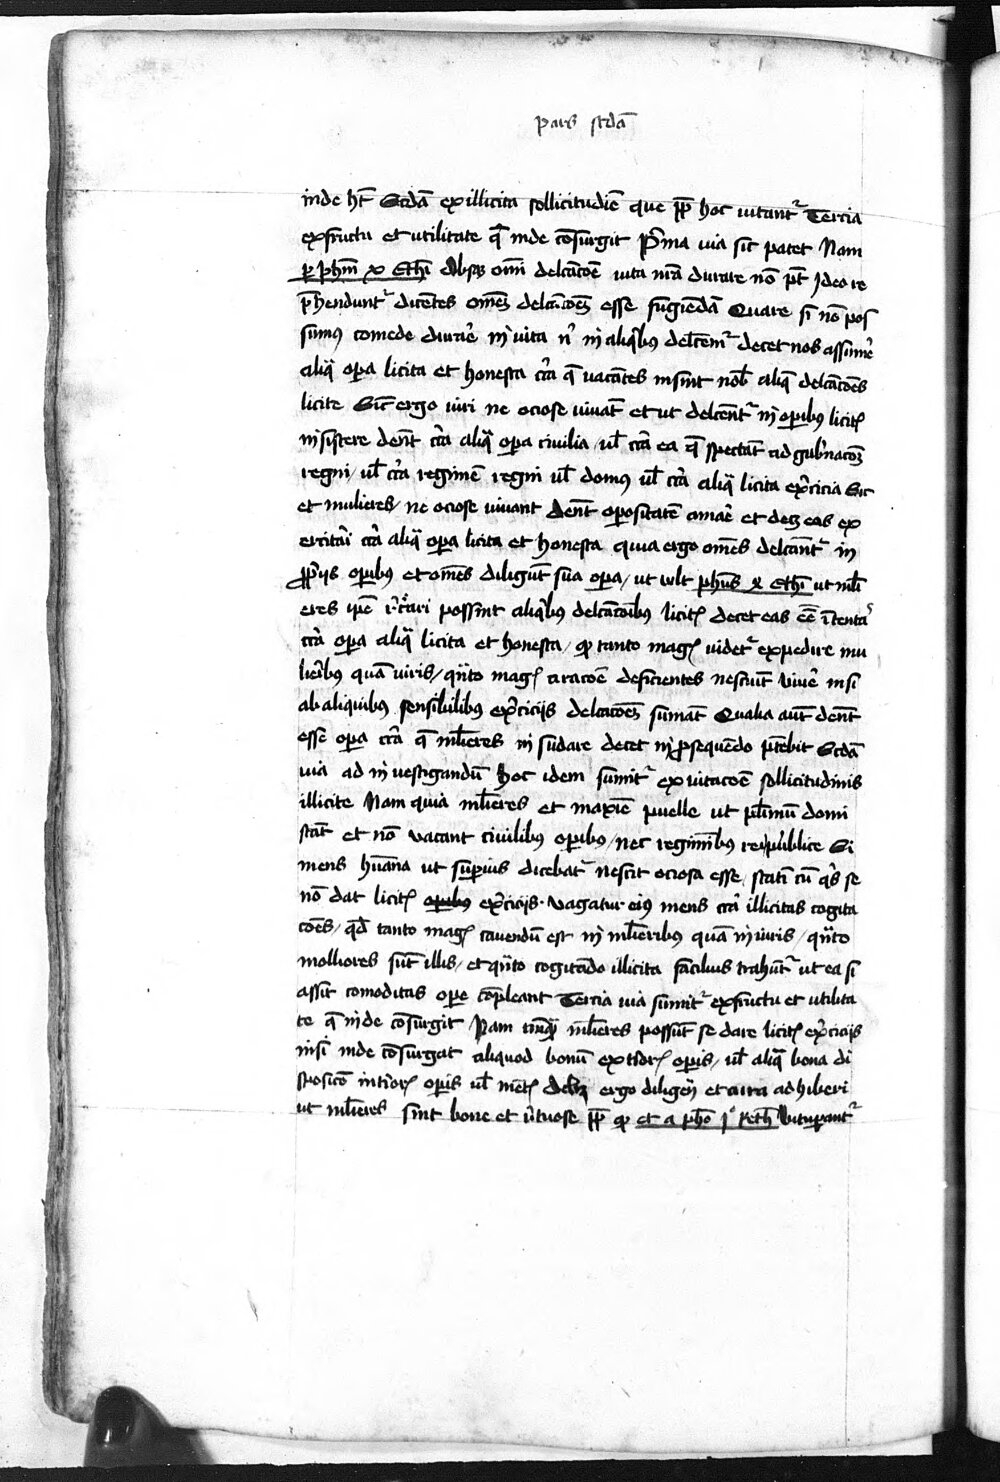 Pars scdā
inde hr̄ Scdā ex illicita sollicitudīe que ꝓp̄ hoc uitant᷑ Tercia
ex fructu et utilitate q̄ inde cōsurgit Pͥma uia sic patet Nam
ꝑ ph̄m x Eth̄i Absqꝫ om̄i delc̄atōe uita nr̄a durare nō pt̄ Ideo re
p̄hendunt᷑ dicētes om̄es delc̄atōes esse fugiēdā Quare si nō pos
sumus comede diuciꝰ in uita nͥ in aliqͥbus delc̄em᷑ decet nos assum̄e
aliq̄ oꝑa licita et honesta cͥca q̄ vacātes insint nob̄ aliq̄ delc̄atōes
licite Sic ergo uiri ne ociose uiuāt et ut delcent᷑ in oꝑibus licitꝭ
insistere dent̄ cͥca aliq̄ oꝑa ciuilia / ul̄ cͥca ea q̄ spectāt ad gub̄nacoꝫ
regni / ul̄ cͥca regimē regni ul̄ domus ul̄ cͥca aliq̄ licita ex̄cicia Sic
et mulieres / ne ociose uiuant dent̄ oꝑositatē amāe et deꝫ eas ex
ercitāi cͥca aliq̄ oꝑa licita et honesta quia ergo om̄es delcānt᷑ in
ꝓpͥis oꝑibus et om̄es diligūt sua oꝑa / ut vult ph̄us x Eth̄i ut mli
eres possint aliqͥbus delc̄atōibus licitꝭ decet eas eē ītentas
cͥca oꝑa aliq̄ licita et honesta / qͦ tanto magꝭ uidet᷑ expedire mu
lieribus quā uiris / qn̄to magꝭ a racōe deficientes nesciūt viuē nisi
ab aliquibus sensibilibus ex̄cicijs delcatōeꝫ sumāt Qualia aūt dent̄
esse oꝑa cͥca q̄ ml̄ieres insudare decet in ꝓsequēdo pt̄ebit Scdā
uia ad inuestigandū hoc idem sumit᷑ ex uitacōe sollicitudinis
illicite Nam quia ml̄ieres et maxīe puelle ut pl̄imū domi
stāt et nō vacant ciuilibus oꝑibus / nec regimībus rei publice Si
mens hūana ut suꝑius dicebat᷑ nescit ociosa esse / statī cū qͥs se
nō dat licitꝭ oꝑibus ex̄cicijs · vagatur eiꝰ mens cͥca illicitas cogita
cōes / qd̄ tanto magꝭ cauendū est in ml̄ieribus quā in uiris / qn̄to
molliores sūt illis / et qn̄to cogitādo illicita facilius trahūt᷑ ut ea si
assit comoditas oꝑe cōpleant Tercia uia sumit᷑ ex fructu et utilita
te q̄ inde cōsurgit Nam nūq̄ ml̄ieres possūt se dare licitꝭ ex̄cicijs
nisi inde cōsurgat aliquod bonū oꝑis / ul̄ aliq̄ bona di
sposicō intioꝝ oꝑis ul̄ mētꝭ Debꝫ ergo diligēꝫ et cura adhiberi
ut ml̄ieres sint bone et v̄tuose ꝓp̄ qͦ et a ph̄o jͦ Reth̄ vituꝑant᷑